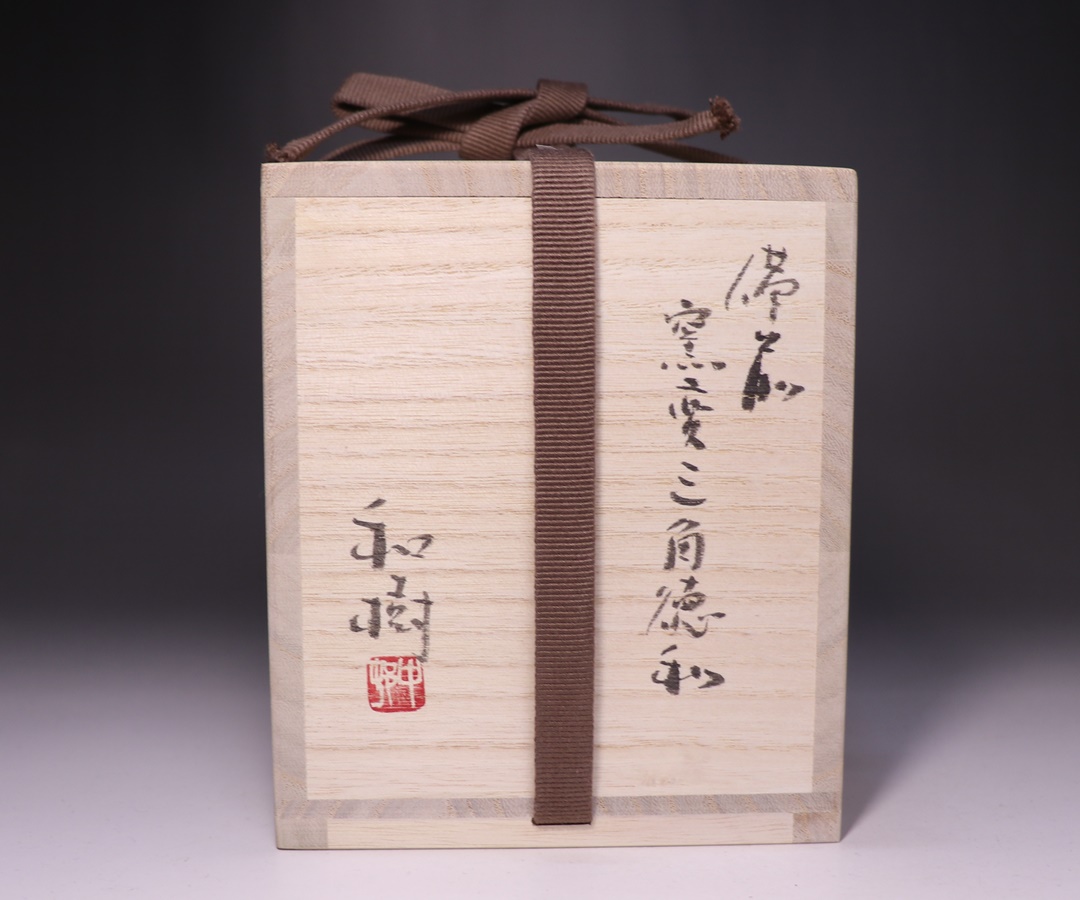 備前
窯変三角徳利
和樹
中村